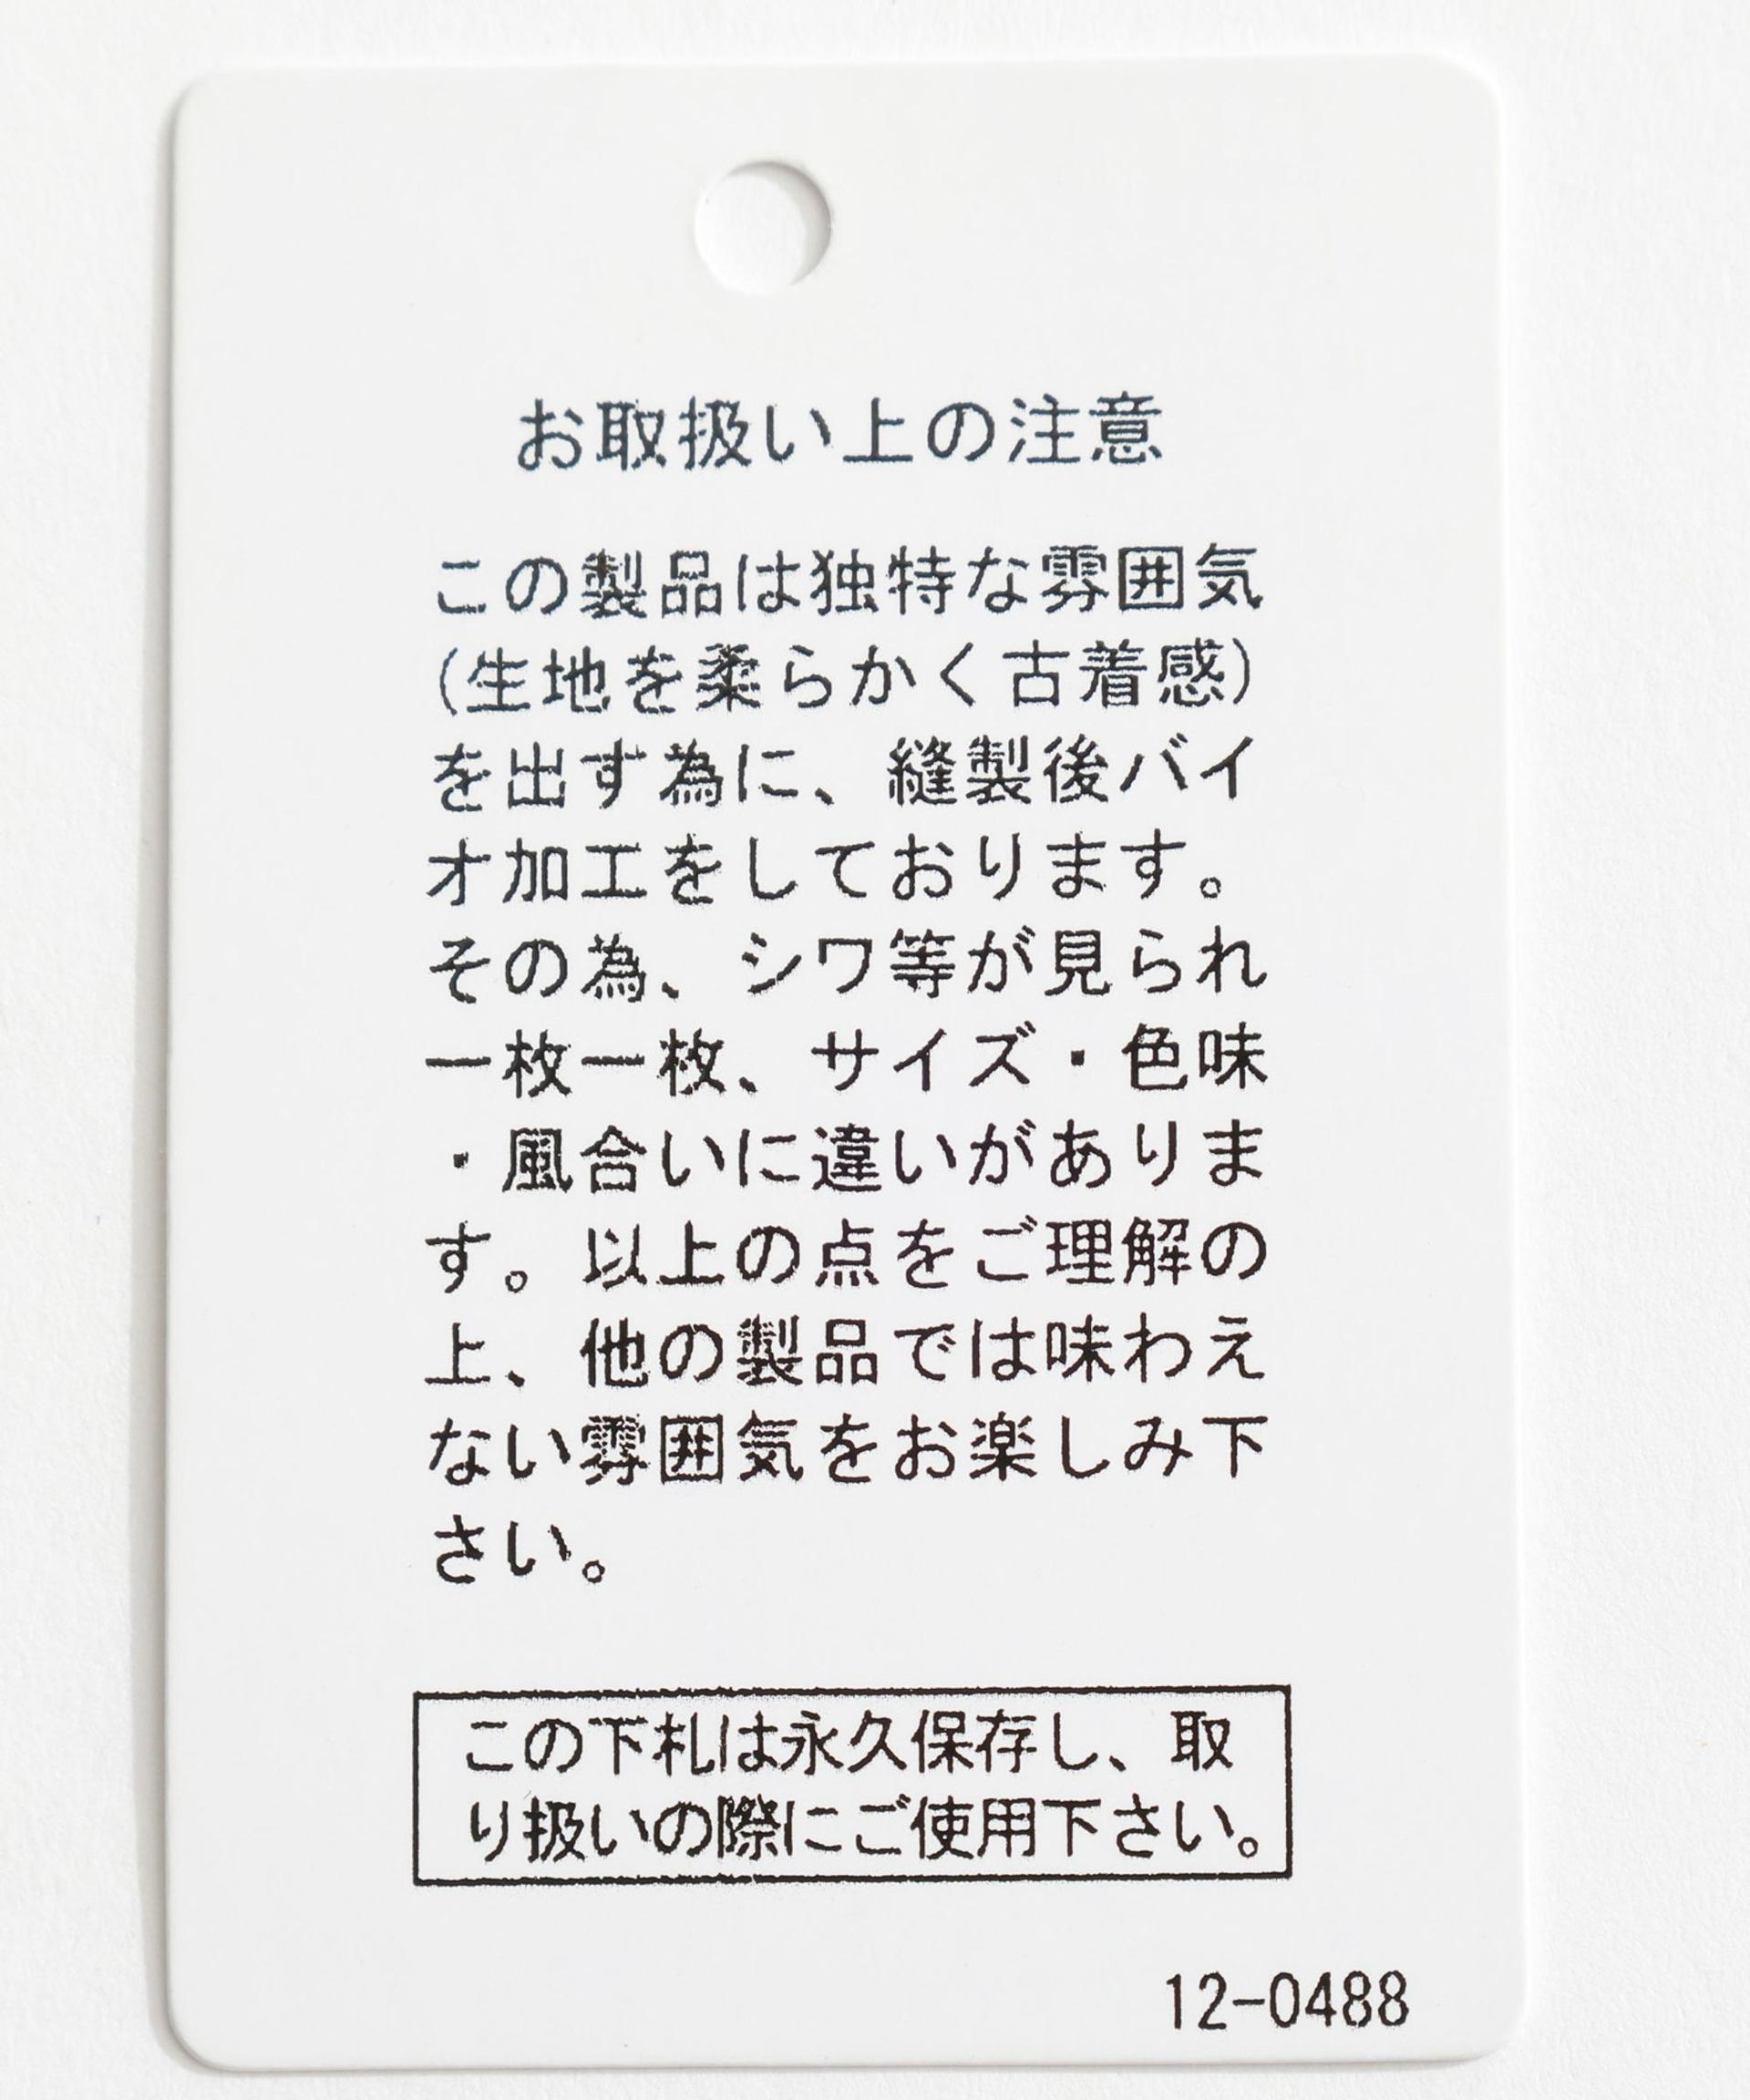 お取扱い上の注意
この製品は独特な雰囲気
(生地を柔らかく古着感)
を出す為に、縫製後バイ
オ加工をしております。
その為、シワ等が見られ
一枚一枚、サイズ・色味
・風合いに違いがありま
す。以上の点をご理解の
上、他の製品では味わえ
ない雰囲気をお楽しみ下
さい。
この下札は永久保存し、取
り扱いの際にご使用下さい。
12-0488